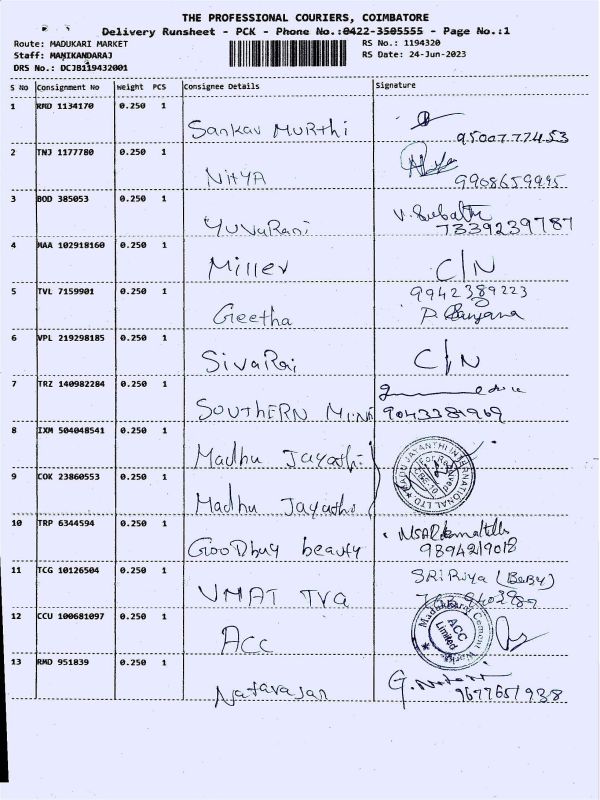 THE PROFESSIONAL COURIERS, COIMBATORE
Delivery Runsheet - PCK - Phone No.:0422-3505555 - Page No.:1
Route: MADUKARI MARKET
RS No.: 1194320
Staff: MANIKANDARAJ
RS Date: 24-Jun-2023
DRS No.: DCJB119432001
S No Consignment No Weight PCS Consignee Details Signature
1 RMD 1134170 0.250 1
Sankav MURthi
9500777453
2 TNJ 1177780 0.250 1
NitYA
9908659995
3 BOD 385053 0.250 1
V.
YUVaRani
7339239787
4 MAA 102918160 0.250 1
Miller C/N
5 TVL 7159901 0.250 1
9942389223
Geetha
6 VPL 219298185 0.250 1
SivaRaj C/N
7 TRZ 140982284 0.250 1
SOUTHERN 9043381969
8 IXM 504048541 0.250 1
Madhu
MADU JAYANTHI INTERNATIONAL LTD
9 COK 23860553 0.250 1
Madhu
10 TRP 6344594 0.250 1
GooDbuy beauty
9894219018
11 TCG 10126504 0.250 1
SRiPriya (BABY)
12 CCU 100681097 0.250 1
ACC
Madukkarai Cement Works
ACC
Limited
13 RMD 951839 0.250 1
Natarajan
9677651938